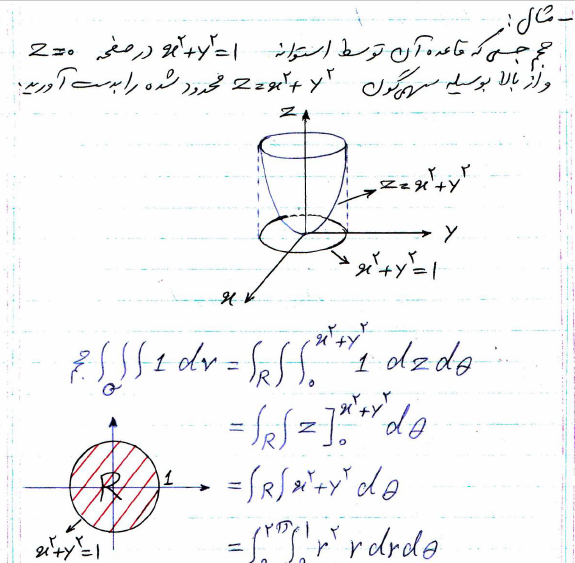 ـ مثال:
حجم جسمی که قاعده آن توسط استوانه x²+y²=1 در صفحه z=0
و از بالا بوسیله سهمی‌گون z=x²+y² محدود شده را بدست آورید.
z
z=x²+y²
y
x²+y²=1
x
حجم ∫∫∫_Q 1 dv = ∫_R∫∫_۰^{x²+y²} 1 dz dθ
= ∫_R∫ z ]_۰^{x²+y²} dθ
R
1
= ∫_R∫ x²+y² dθ
x²+y²=1
= ∫_۰^{۲π}∫_۰^1 r² r dr dθ